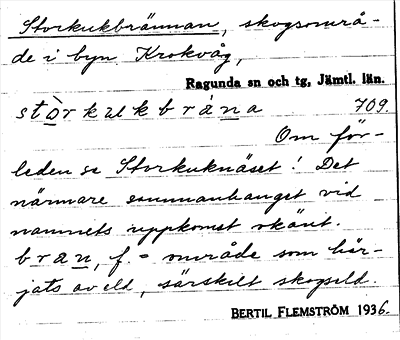 Storkukbrännan, skogsområ-
de i byn Krokvåg,
Ragunda sn och tg, Jämtl. län.
stòrkukbrána 709.
Om för-
leden se Storkuknäset! Det
närmare sammanhanget vid
namnets uppkomst okänt.
bran, f. = område som här-
jats av eld, särskilt skogseld.
BERTIL FLEMSTRÖM 1936.